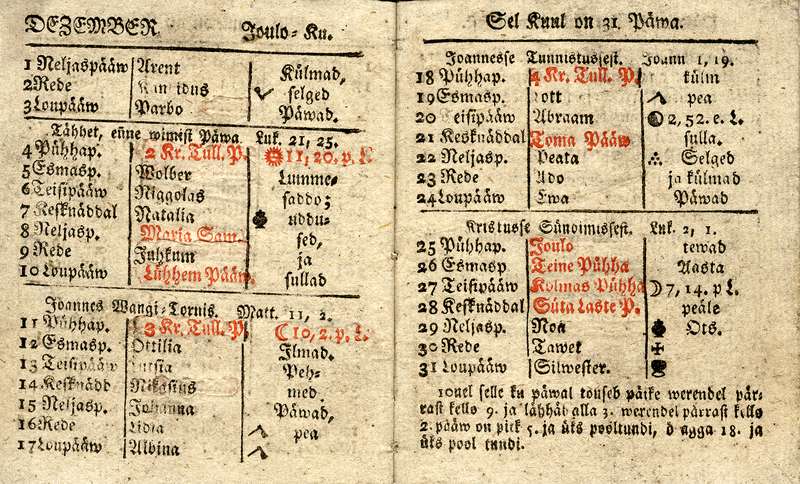 DEZEMBER Joulo-Ku.
1 Neljaspääw Arent Külmad,
2 Rede selged
3 Loupääw Parbo Päwad.
Tähhet, enne wimest Päwa. Luk. 21, 25.
4 Pühhap. 2 Kr. Tull. P. 11, 20. p. L.
5 Esmasp. Wolber Lumme-
6 Teisipääw Niggolas saddo;
7 Kesknäddal Natalia uddu-
8 Neljasp. Maria Sam. sed,
9 Rede Juhkum ja
10 Loupääw Lühhem Pääw. sullad
Joannes Wangi-Tornis. Matt. 11, 2.
11 Pühhap. 3 Kr. Tull. P. ☾ 10, 2. p. L.
12 Esmasp. Ottilia Ilmad.
13 Teisipääw Lutsia Peh-
14 Kesknädd Nikasius med
15 Neljasp. Johanna Päwad,
16 Rede Lidia pea
17 Loupääw Albina
Sel Kuul on 31. Päwa.
Joannesse Tunnistussest. Joann 1, 19.
18 Pühhap. 4 Kr. Tull. P. külm
19 Esmasp. ott pea
20 Teisipääw Abraam 2, 52. e. L.
21 Kesknäddal Toma Pääw sulla.
22 Neljasp. Peata Selged
23 Rede Ado ja külmad
24 Loupääw Ewa Päwad
Kristusse Sündimissest. Luk. 2, 1.
25 Pühhap. Joulo tewad
26 Esmasp Teine Pühha Aasta
27 Teisipääw Kolmas Pühha ☽ 7, 14. p L.
28 Kesknäddal Süta Laste P. peäle
29 Neljasp. Noa Ots.
30 Rede Tawet
31 Loupääw Silwester.
10nel selle ku päwal touseb päike werendel pär-
rast kello 9. ja lähhäb alla 3. werendel pärrast kello
2. pääw on pitk 5. ja üks pooltundi, ö agga 18. ja
üks pool tundi.